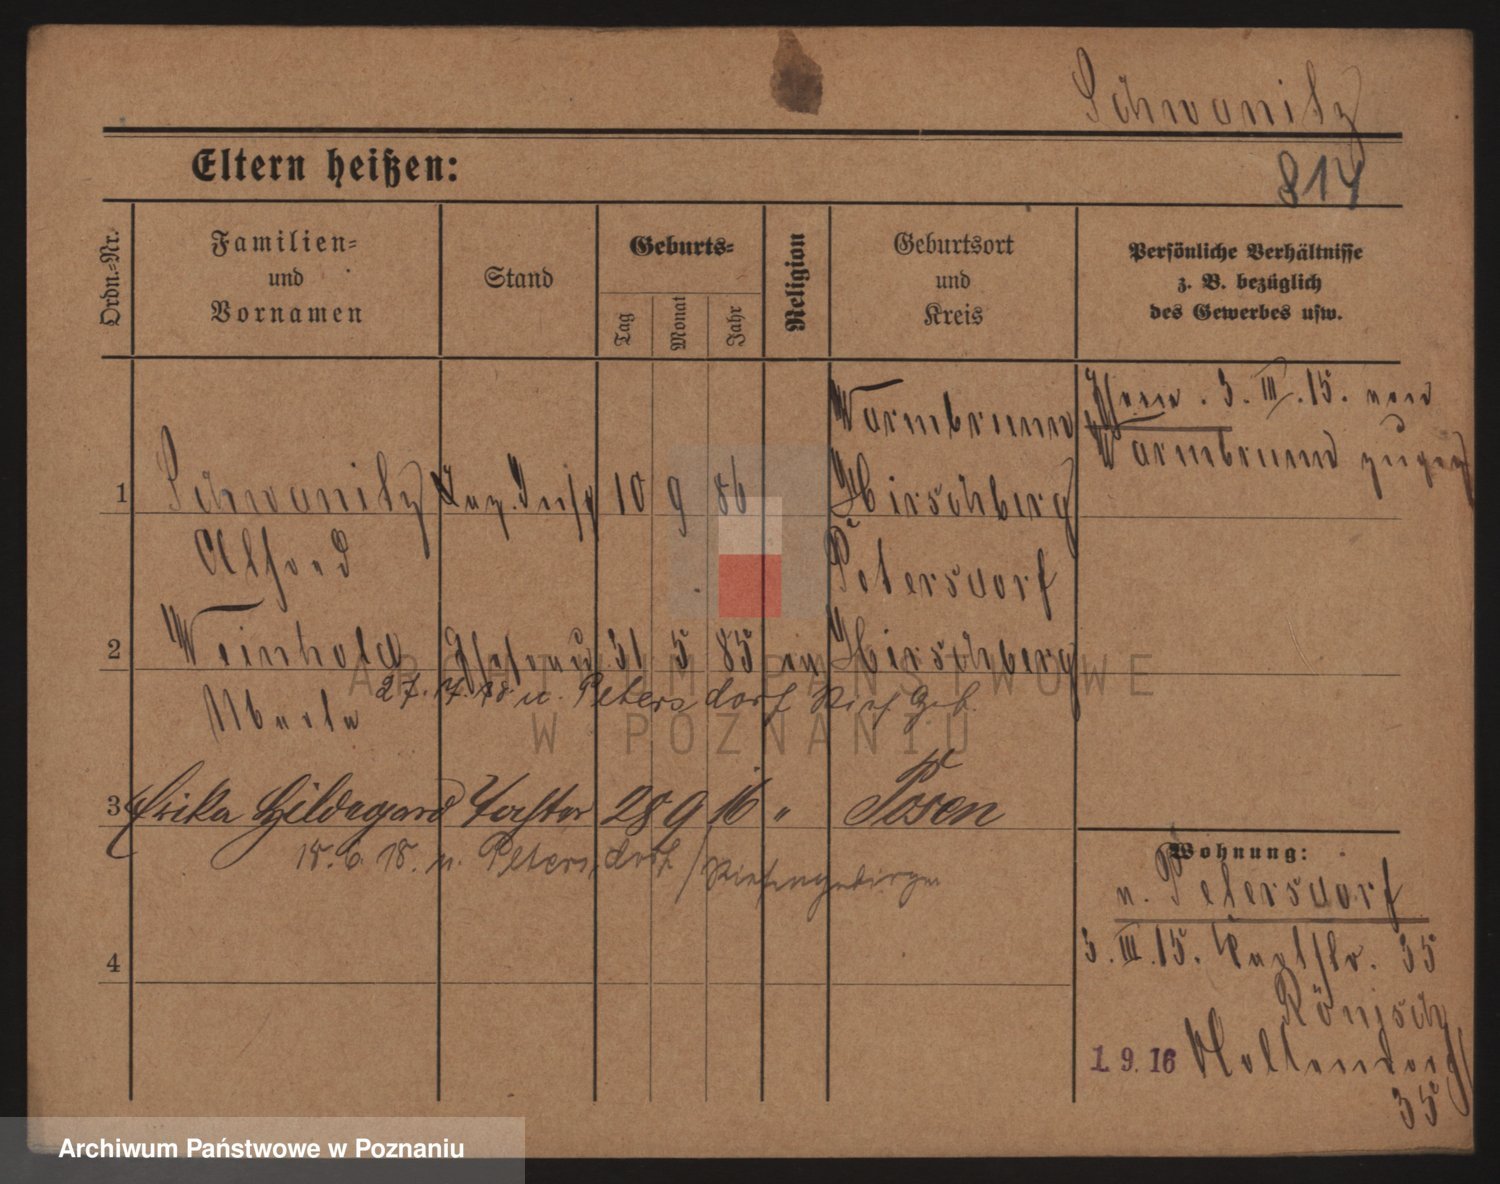 Schwanitz
Eltern heißen:
814
Ordn.-Nr.
Familien=
und
Vornamen
Stand
Geburts=
Tag
Monat
Jahr
Religion
Geburtsort
und
Kreis
Persönliche Verhältnisse
z. B. bezüglich
des Gewerbes usw.
1
Schwanitz
Alfred
10 9 86
Warmbrunn
Hirschberg
3. III. 15. von
Warmbrunn zugez
2
Weinhold
Ehefrau 31 5 85 ev
Petersdorf
Hirschberg
n. Petersdorf
3 Erika Hildegard Tochter 28 9 16 " Posen
15. 6. 18. n. Petersdorf / Riesengebirge
4
Wohnung:
n. Petersdorf
3. III. 15. 35
1. 9. 16
35
ARCHIWUM PAŃSTWOWE
W POZNANIU
Archiwum Państwowe w Poznaniu